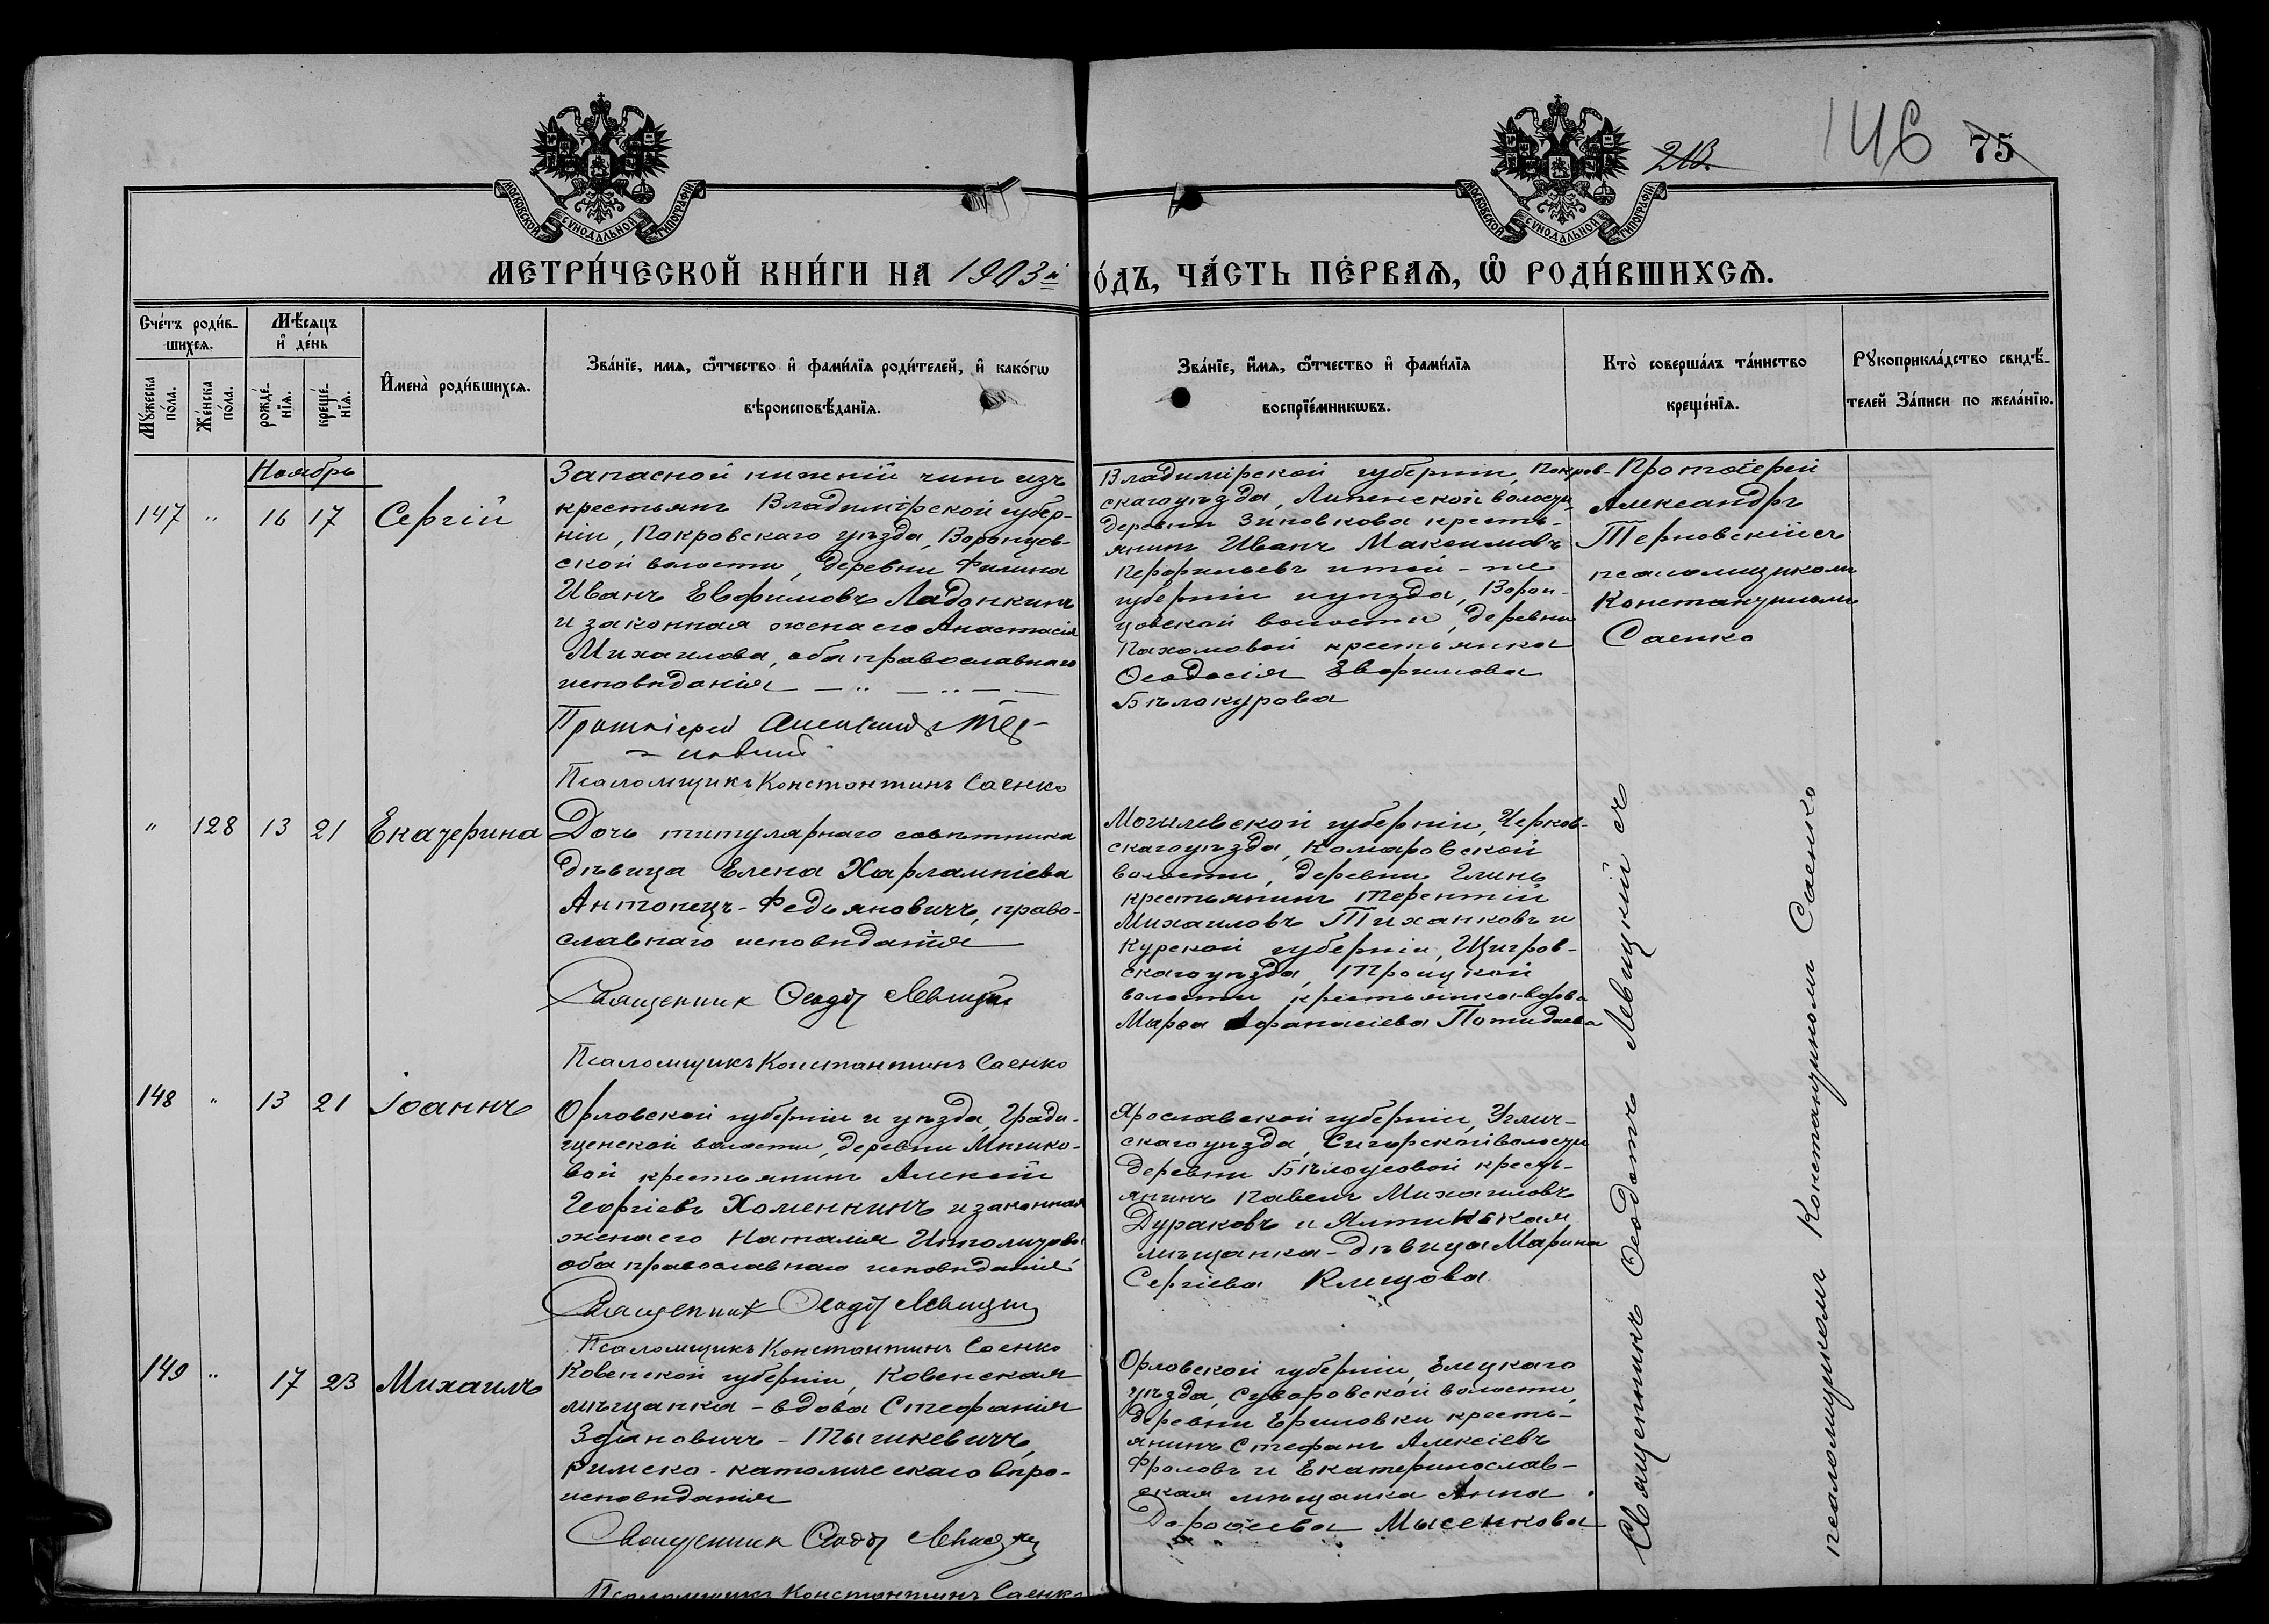 213.
146
75
МОСКОВСКОЙ СѴНОДАЛЬНОЙ ТИПОГРАФІИ
МОСКОВСКОЙ СѴНОДАЛЬНОЙ ТИПОГРАФІИ
МЕТРИ́ЧЕСКОЙ КНИ́ГИ НА 1903й
О́ДЪ, ЧА́СТЬ ПЕ́РВАѦ, Ѡ РОДИ́ВШИХСѦ.
Сче́тъ роди́в-
шихсѧ.
Мѣ́сѧцъ
и҆ де́нь
Мꙋжеска
по́ла.
Же́нска
по́ла.
рожде́-
нїѧ.
креще́-
нїѧ.
И҆мена̀ роди́вшихсѧ.
Зва́нїе, имѧ, ѻ҆́тчество и҆ фами́лїѧ роди́телей, и҆ како́гѡ
вѣроисповѣ́данїѧ.
Зва́нїе, и҆́мѧ, ѻ҆́тчество и҆ фами́лїѧ
воспрїе́мникѡвъ.
Кто̀ соверша́лъ та́инство
креще́нїѧ.
Рꙋкоприкла́дство свидѣ́-
телей За́писи по жела́нїю.
Ноябрь
147 " 16 17 Сергій
Запасной нижній чинъ изъ
крестьянъ Владимірской губер-
ніи, Покровскаго уѣзда, Воронцов-
ской волости, деревни Филина
Иванъ Евфимовъ Ладонкинъ
и законная жена его Анастасія
Михаилова, оба православнаго
исповѣданія
Протоіерей Александръ Тер-
новскій
Псаломщикъ Константинъ Саенко
Владимірской губерніи, Покров-
скаго уѣзда, Липенской волости,
деревни Зиновкова кресть-
янинъ Иванъ Максимовъ
Перфильевъ и той-же
губерніи и уѣзда, Ворон-
цовской волости, деревни
Пахомовой крестьянка
Ѳеодосія Евфимова
Бѣлокурова
Протоіерей
Александръ
Терновскій съ
псаломщикомъ
Константиномъ
Саенко
" 128 13 21 Екатерина
Дочь титулярнаго совѣтника
дѣвица Елена Харлампіева
Антонецъ-Федьяновичъ, право-
славнаго исповѣданія
Священникъ Ѳеодотъ Левицкій
Псаломщикъ Константинъ Саенко
Могилевской губерніи, Чериков-
скаго уѣзда, Комаровской
волости, деревни Глинь
крестьянинъ Терентій
Михаиловъ Тиханковъ и
Курской губерніи, Щигров-
скаго уѣзда, Троицкой
волости крестьянка-вдова
Марѳа Афанасіева Потидаева
148 " 13 21 Іоаннъ
Орловской губерніи и уѣзда, Гради-
щенской волости, деревни Мышко-
вой крестьянинъ Алексій
Георгіевъ Хоменкинъ и законная
жена его Наталія Ипполитова
оба православнаго исповѣданія
Священникъ Ѳеодотъ Левицкій
Псаломщикъ Константинъ Саенко
Ярославской губерніи, Углич-
скаго уѣзда, Сигорской волости
деревни Бѣлоусовой кресть-
янинъ Павелъ Михаиловъ
Дураковъ и Ялтинская
мѣщанка-дѣвица Марина
Сергіева Клецова
149 " 17 23 Михаилъ
Ковенской губерніи, Ковенская
мѣщанка-вдова Стефанія
Здановичъ-Тышкевичъ,
римско-католическаго вѣро-
исповѣданія
Священникъ Ѳеодотъ Левицкій
Псаломщикъ Константинъ Саенко
Орловской губерніи, Елецкаго
уѣзда, Суворовской волости,
деревни Ериловки кресть-
янинъ Стефанъ Алексіевъ
Фроловъ и Екатеринослав-
ская мѣщанка Анна
Дороѳеева Мысенкова
Священникъ Ѳеодотъ Левицкій съ
псаломщикомъ Константиномъ Саенко